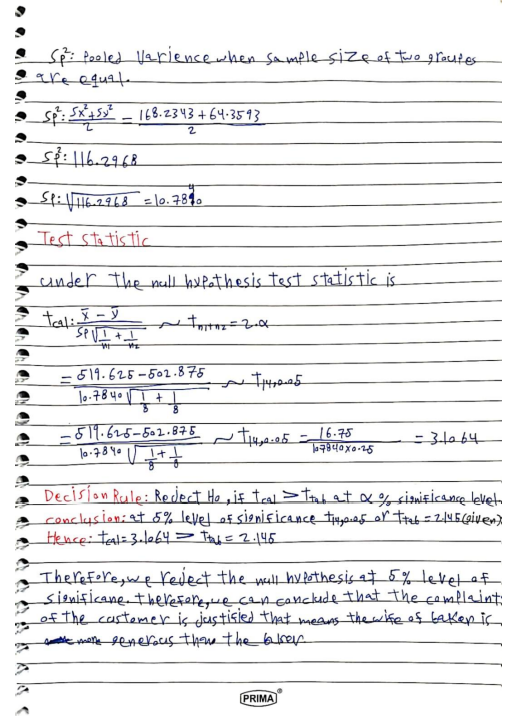 Sp²: Pooled Varience when sample size of two groupes
are equal.
Sp²: Sx²+Sy² / 2 = 168.2343+64.3593 / 2
Sp²: 116.2968
Sp: √116.2968 = 10.7840
Test statistic
under The null hypothesis test statistic is
tcal: x̄ - ȳ / SP√(1/n1 + 1/n2) ~ tn1+n2=2.α
= 519.625-502.875 / 10.7840√(1/8 + 1/8) ~ T14,0.05
= 519.625-502.875 / 10.7840√(1/8 + 1/8) ~ T14,0.05 = 16.75 / 107840×0.25 = 3.1064
Decision Rule: Reject Ho, if tcal > Ttab at α % significance level.
conclusion: at 5% level of significance t14,0.05 or ttab = 2.145 (given).
Hence: tcal=3.1064 > Ttab = 2.145
Therefore, we reject the null hypothesis at 5% level of
significane. therefore, we can conclude that the complaint
of the customer is justified that means the wife of baker is
more generous than the baker
PRIMA®